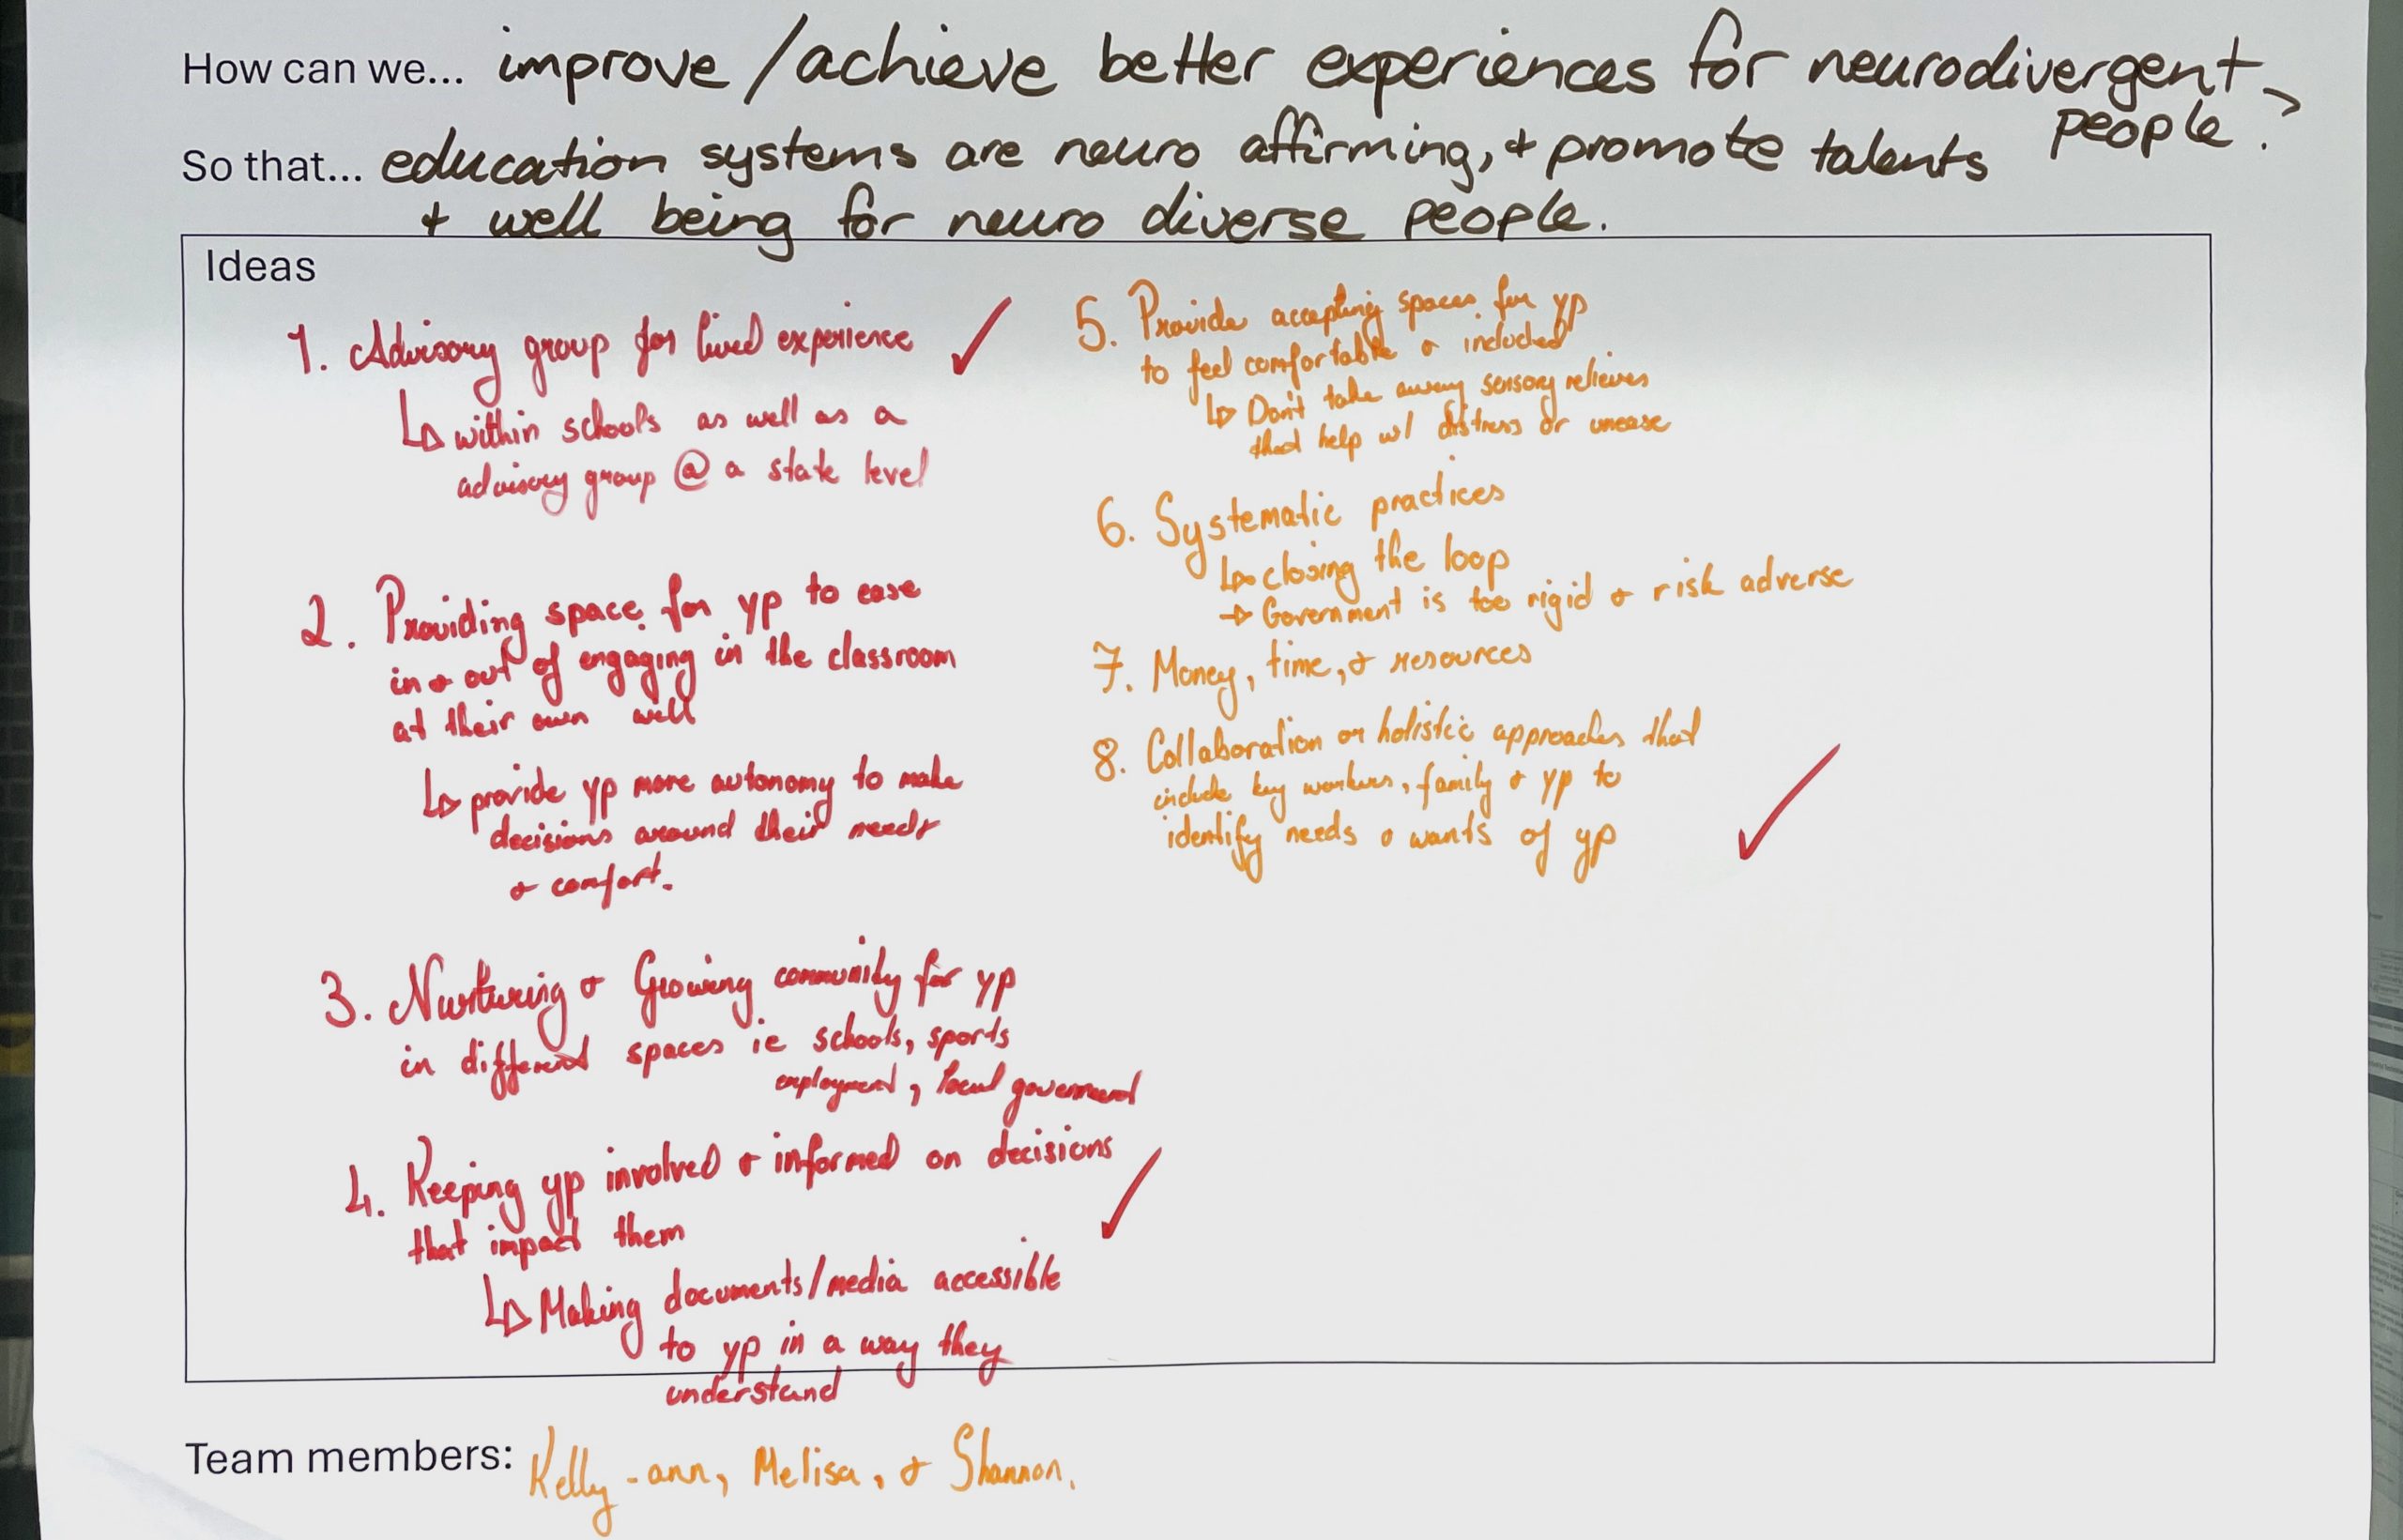 How can we... improve/achieve better experiences for neurodivergent people?
So that... education systems are neuro affirming, + promote talents
+ well being for neuro diverse people.
Ideas
1. Advisory group for lived experience ✓
↳ within schools as well as a
advisory group @ a state level
2. Providing space for yp to ease
in + out of engaging in the classroom
at their own will
↳ provide yp more autonomy to make
decisions around their needs
+ comfort.
3. Nurturing + Growing community for yp
in different spaces ie schools, sports
employment, local government
4. Keeping yp involved + informed on decisions
that impact them ✓
↳ Making documents/media accessible
to yp in a way they
understand
5. Provide accepting spaces for yp
to feel comfortable + included
↳ Don't take away sensory relieves
that help w/ distress or unease
6. Systematic practices
↳ closing the loop
→ Government is too rigid + risk adverse
7. Money, time, + resources
8. Collaboration or holistic approaches that
include key workers, family + yp to
identify needs + wants of yp ✓
Team members: Kelly-ann, Melisa, + Shannon.